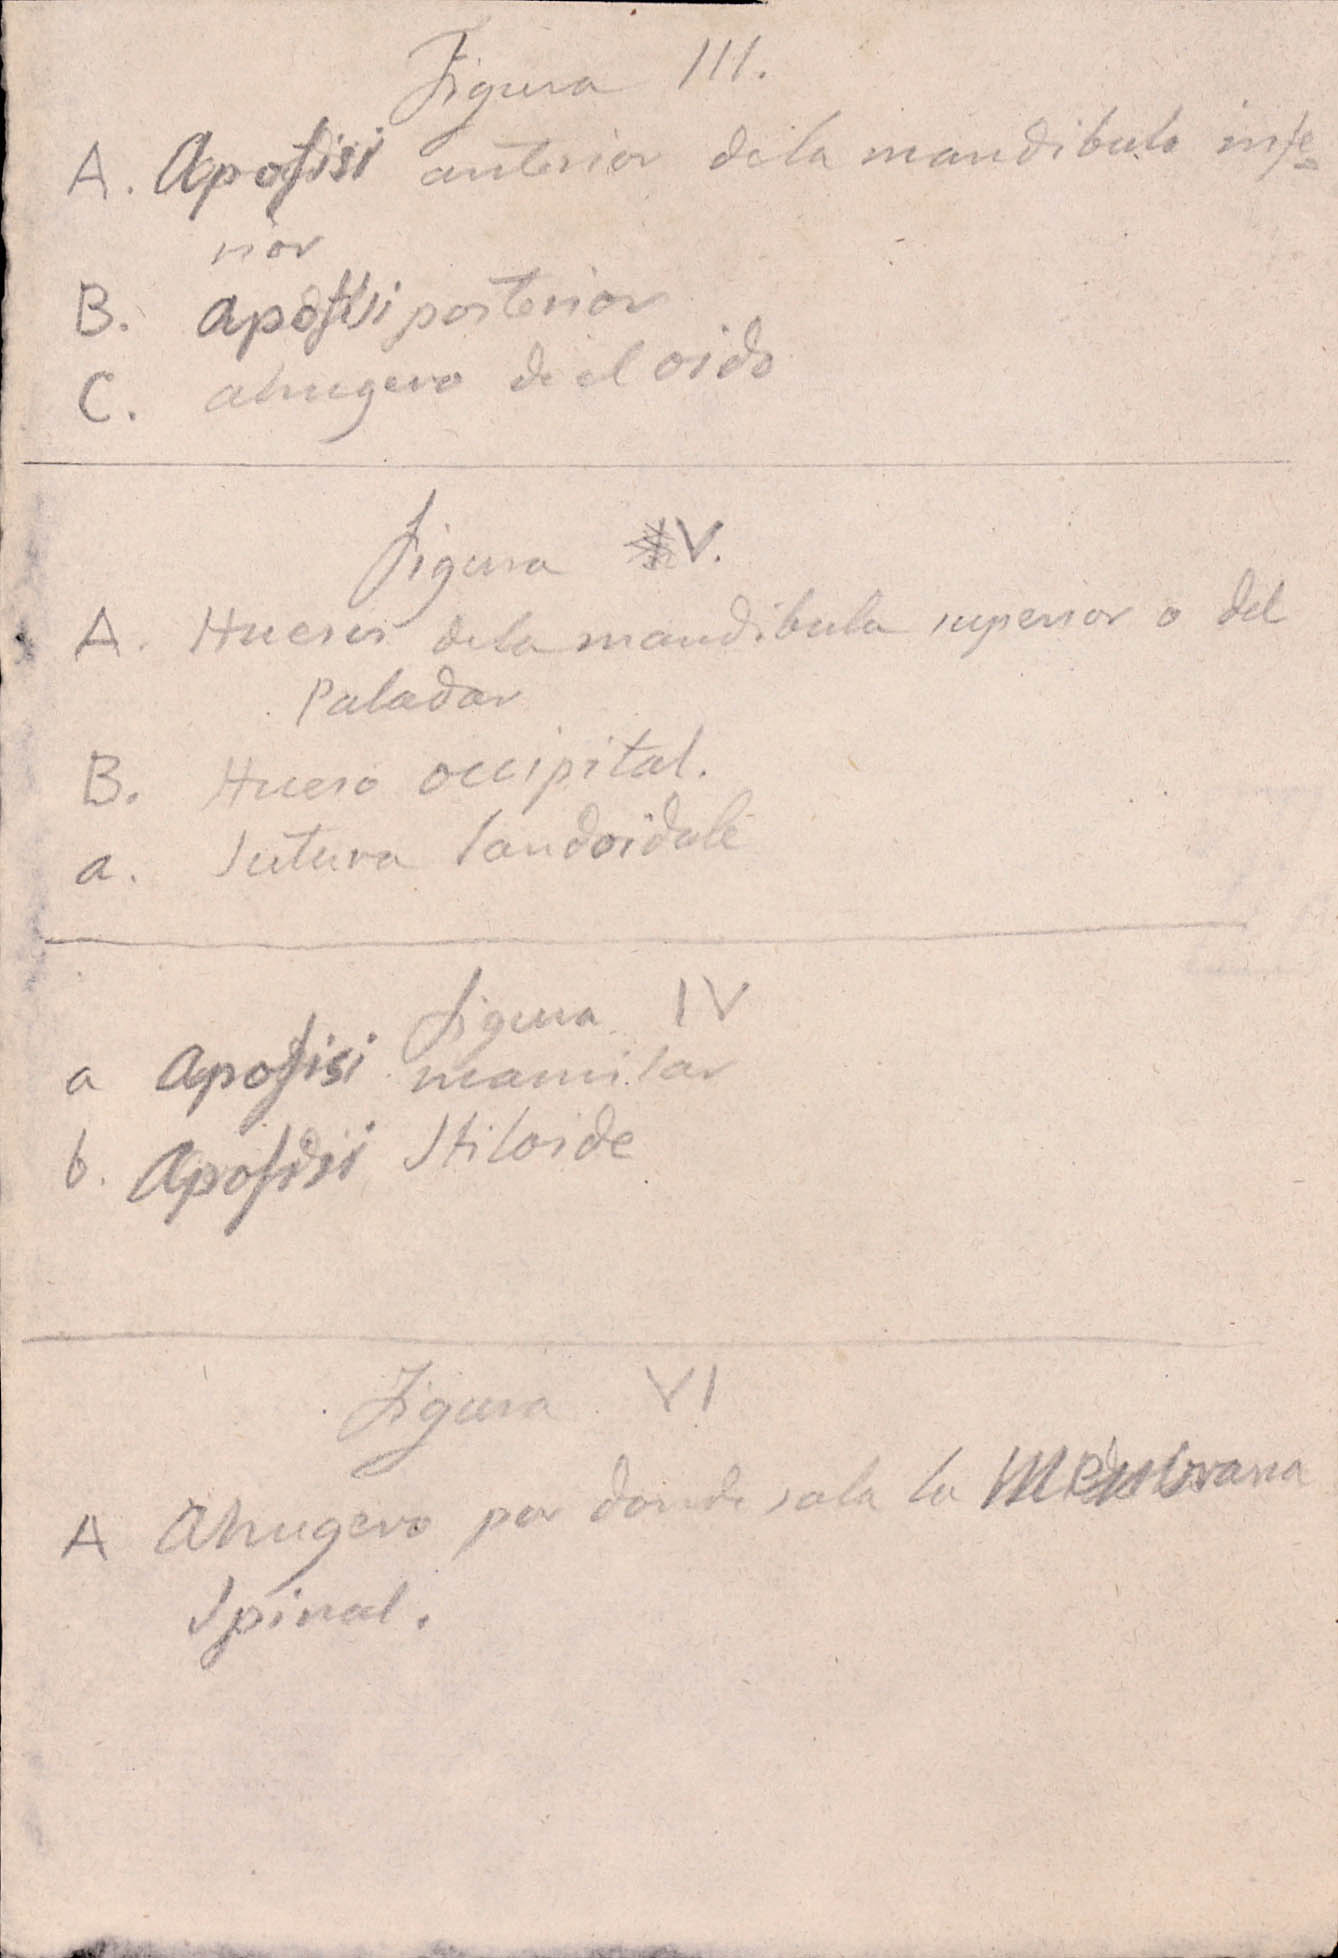 Figura III.
A. Apofisi anterior dela mandibula infe=
rior
B. apofisi posterior
C. ahugero de el oido
Figura V.
A. Huesos dela mandibula superior o del
Paladar
B. Hueso occipital.
a. Sutura landoidale
figura IV
a Apofisi mamilar
b. Apofisi Stiloide
Figura VI
A Ahugero por donde sala la
Spinal.